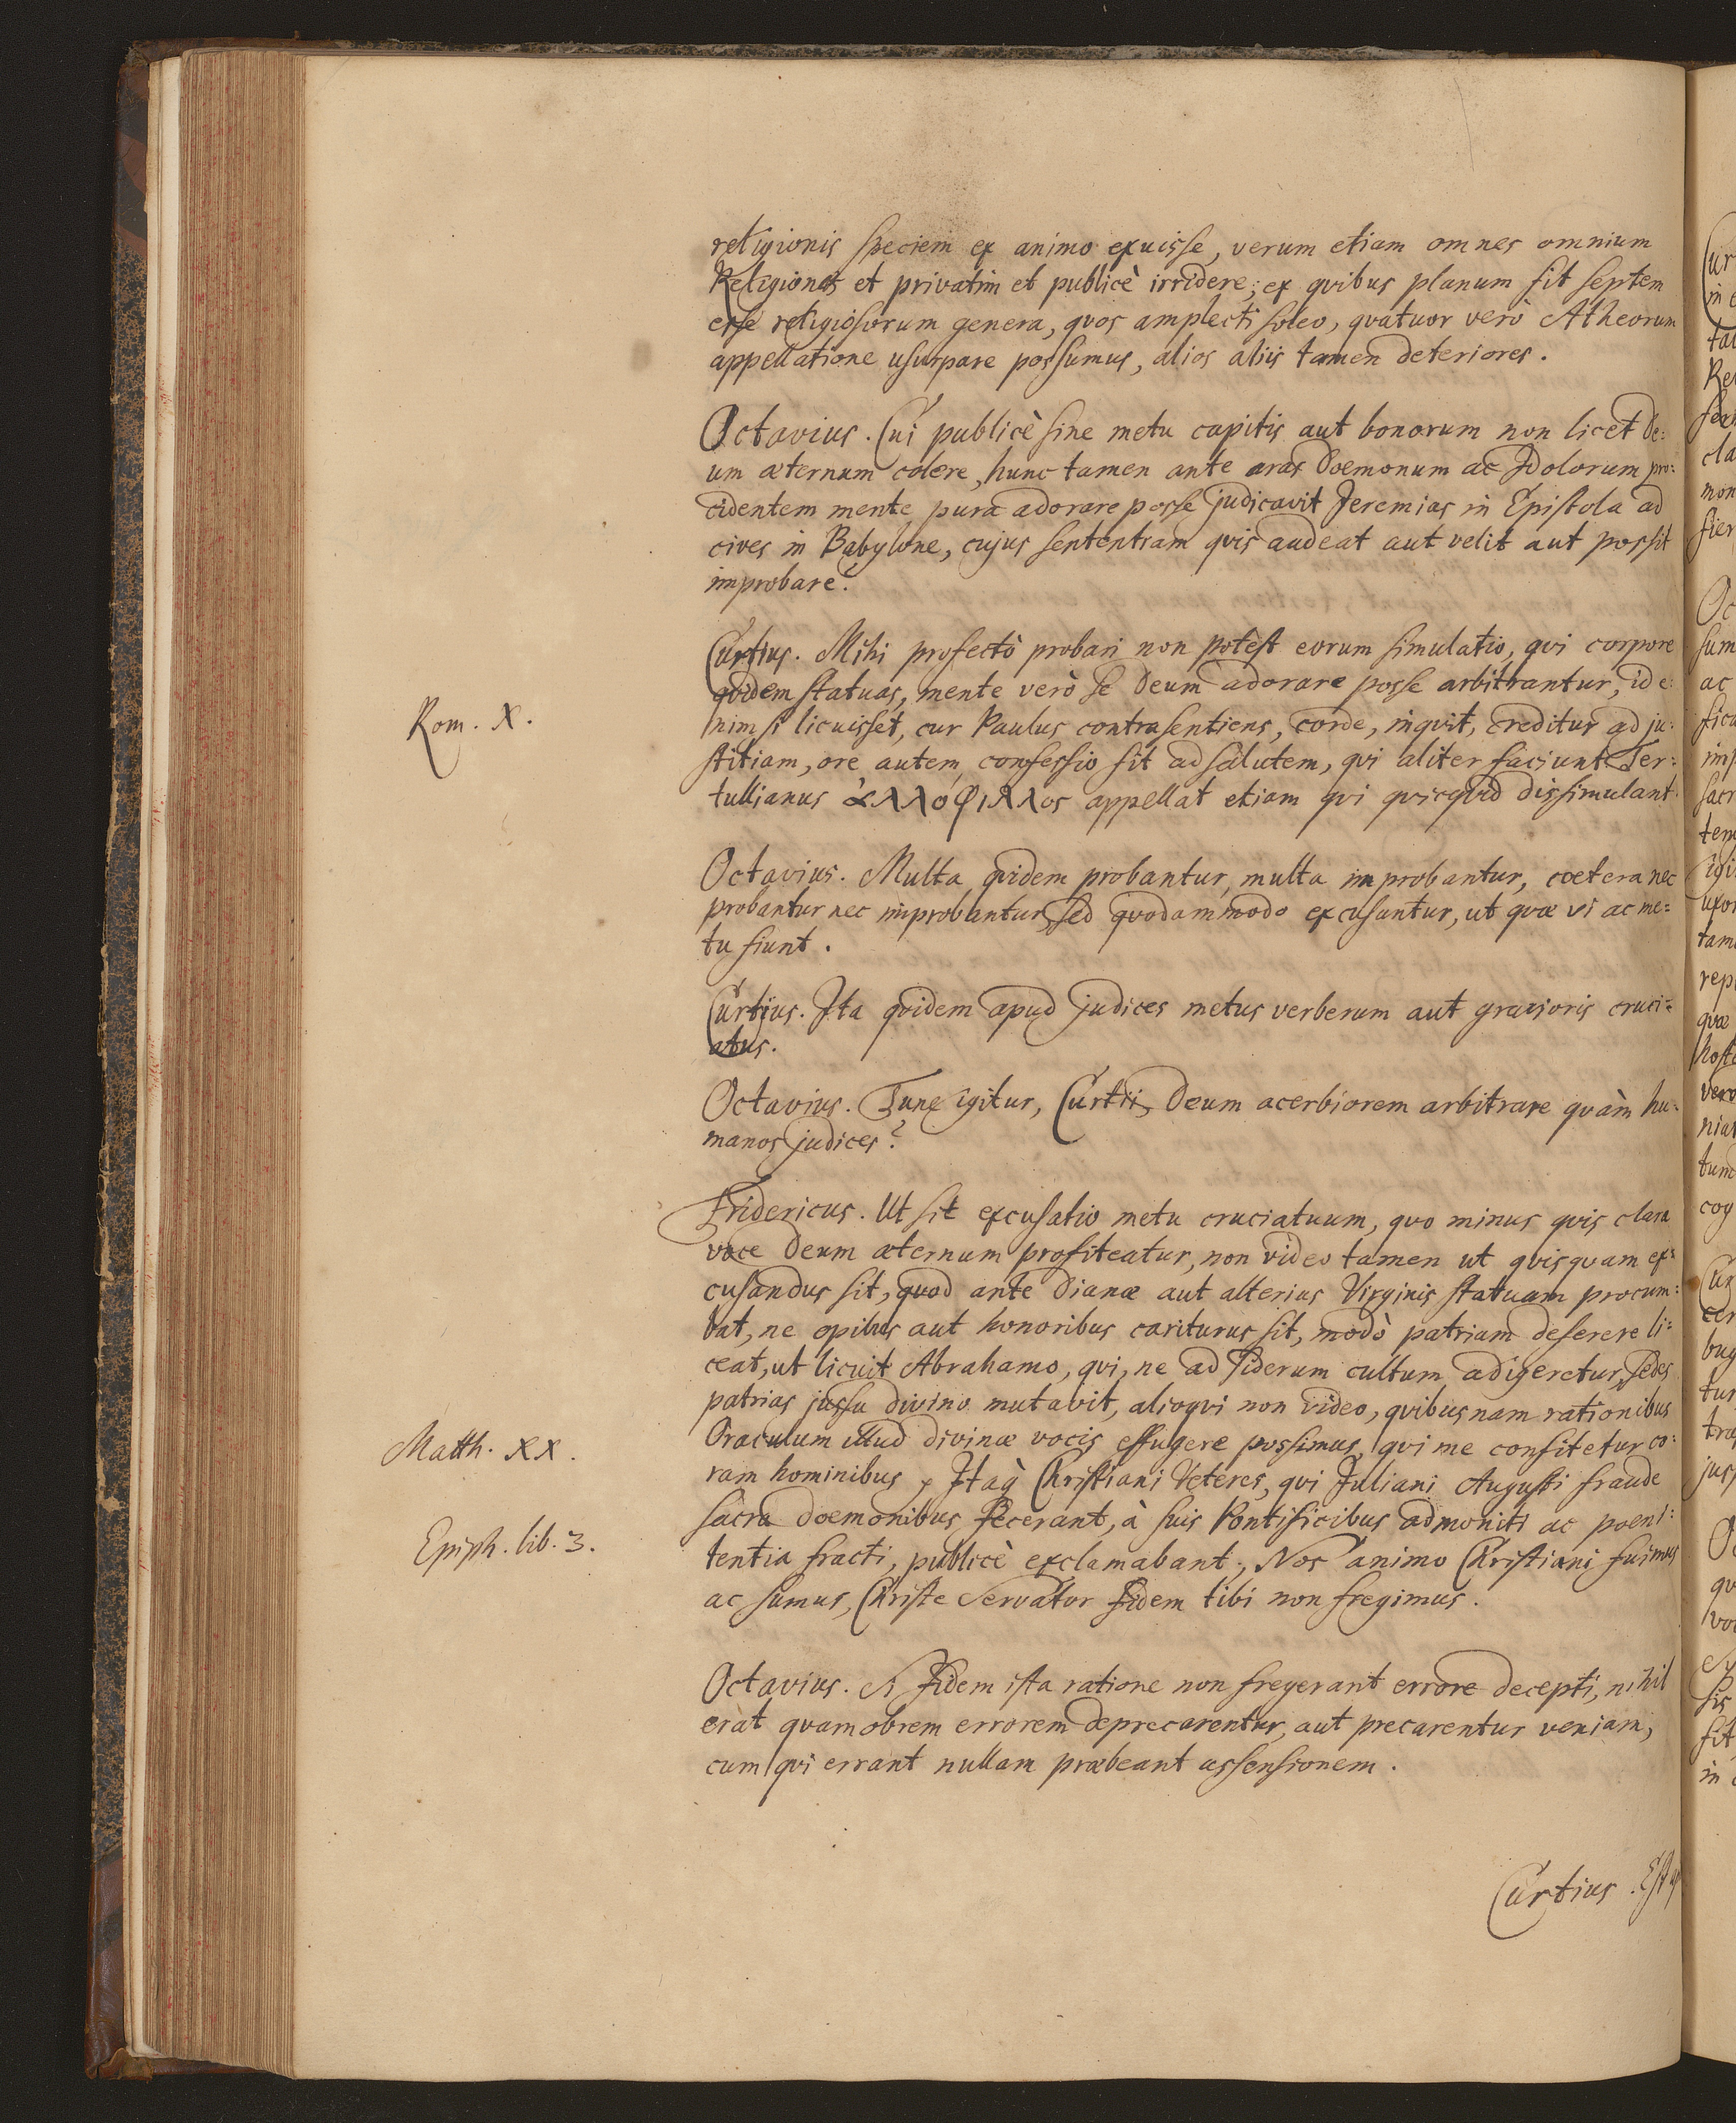 religionis speciem ex animo exuisse, verum etiam omnes omnium
Religiones et privatim et publicè irridere; ex quibus planum fit septem
esse religiosorum genera, quos amplecti soleo, quatuor verò Atheorum
appellatione usurpare possumus, alios aliis tamen deteriores.
Octavius. Cui publicè sine metu capitis aut bonorum non licet De:
um æternum colere, hunc tamen ante aras Dœmonum ac Idolorum pro:
cidentem mente pura adorare posse judicavit Jeremias in Epistola ad
cives in Babylone, cujus sententiam quis audeat aut velit aut possit
improbare?
Curtius. Mihi profectò probari non potest eorum simulatio, qui corpore
quidem statuas, mente verò se Deum adorare posse arbitrantur, id e:
Rom. X.
nim si licuisset, cur Paulus contra sentiens, corde, inquit, creditur ad ju:
stitiam, ore autem confessio fit ad salutem, qui aliter faciunt Ter:
tullianus ἀλλοφιλλos appellat etiam qui quicquid dissimulant.
Octavius. Multa quidem probantur, multa improbantur, cœtera nec
probantur nec improbantur, sed quodammodo excusantur, ut quæ vi ac me=
tu fiunt.
Curtius. Ita quidem apud judices metus verberum aut gravioris cruci=
atus.
Octavius. Tune igitur, Curtii, Deum acerbiorem arbitrare quàm hu:
manos judices?
Fridericus. Ut sit excusatio metu cruciatuum, quo minus quis clara
voce Deum æternum profiteatur, non video tamen ut quisquam ex=
cusandus sit, quod ante Dianæ aut alterius Virginis statuam procum:
bat, ne opibus aut honoribus cariturus sit, modò patriam deserere li=
ceat, ut licuit Abrahamo, qui, ne ad siderum cultum adigeretur, sedes
patrias jussu divino mutavit, alioqui non video, quibusnam rationibus
Matth. XX.
Oraculum illud divinæ vocis effugere possimus, qui me confitetur co:
ram hominibus Itaq Christiani Veteres, qui Juliani Augusti fraude
sacra dœmonibus fecerant, à suis Pontificibus admoniti ac poeni:
Epiph. lib. 3.
tentia fracti, publicè exclamabant; Nos animo Christiani fuimus
ac sumus, Christe Servator fidem tibi non fregimus.
Octavius. Si fidem ista ratione non fregerant errore decepti, nihil
erat quamobrem errorem deprecarentur, aut precarentur veniam,
cum qui errant nullam præbeant assensionem.
Curtius. Est